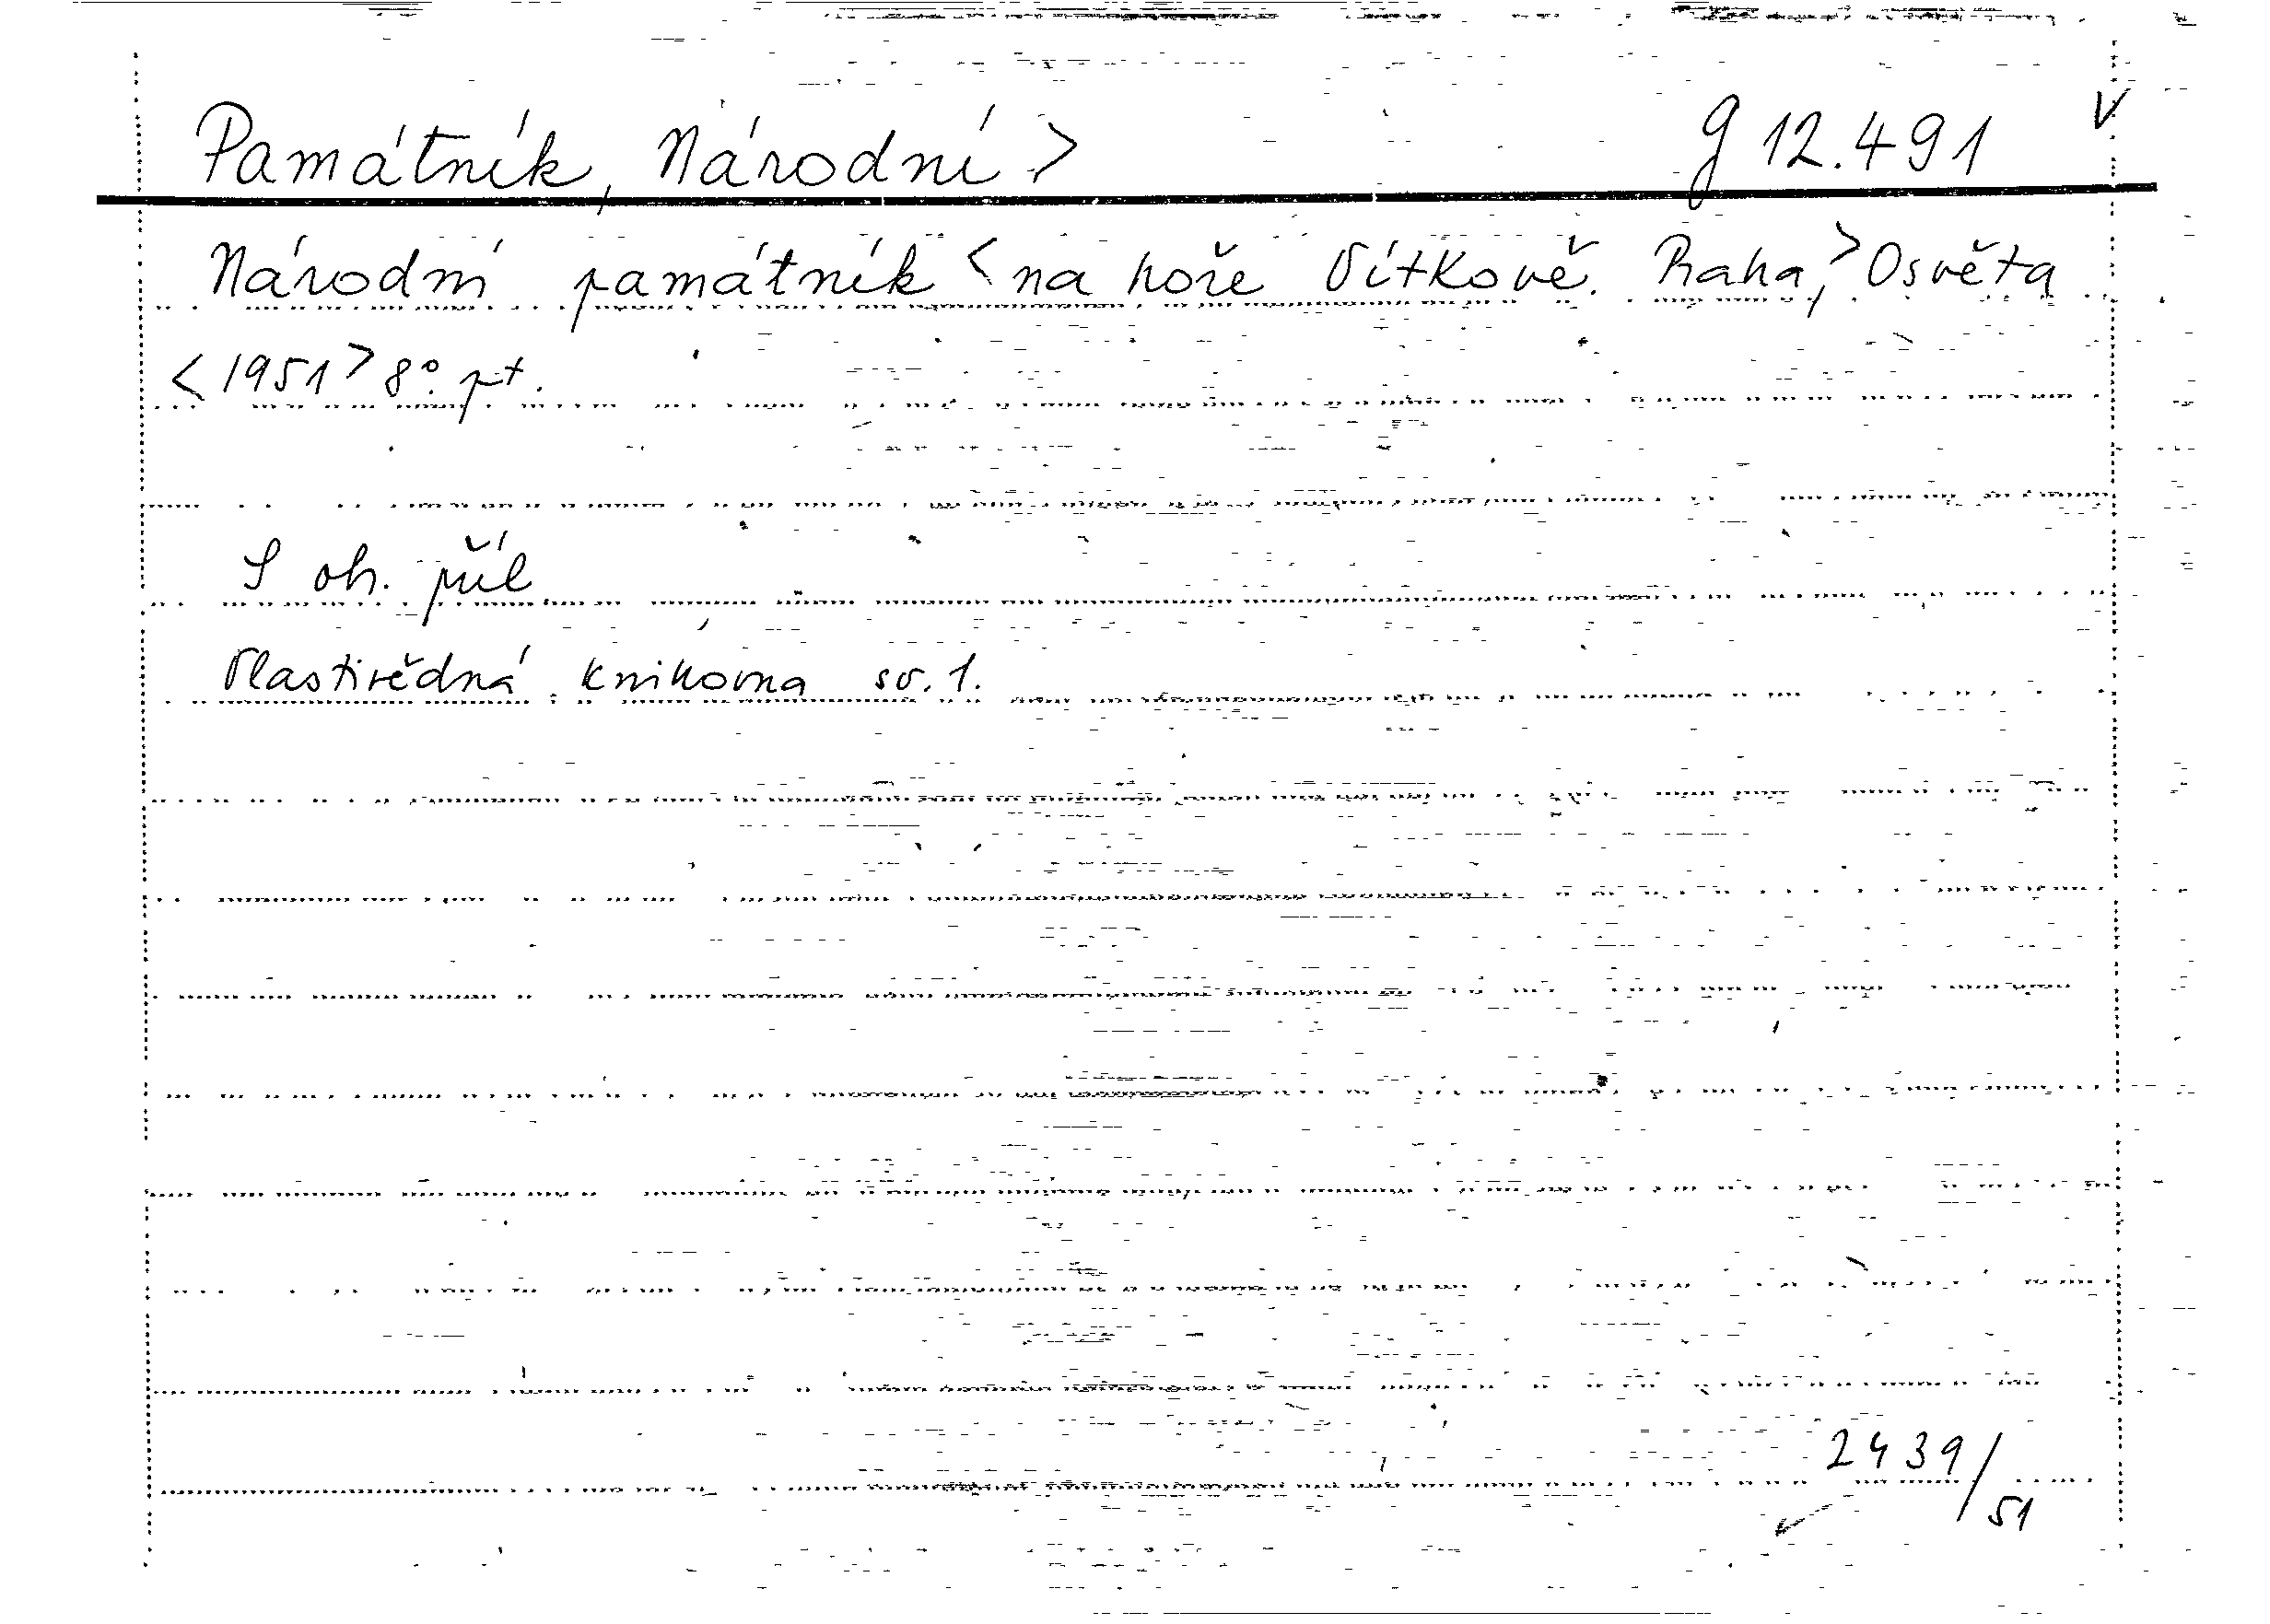 Památník, Národní > g 12.491 V
Národní památník < na hoře Vítkově. Praha, > Osvěta
< 1951 > 8° pt.
S ob. příl.
Vlastivědná knihovna sv. 1.
2439/51